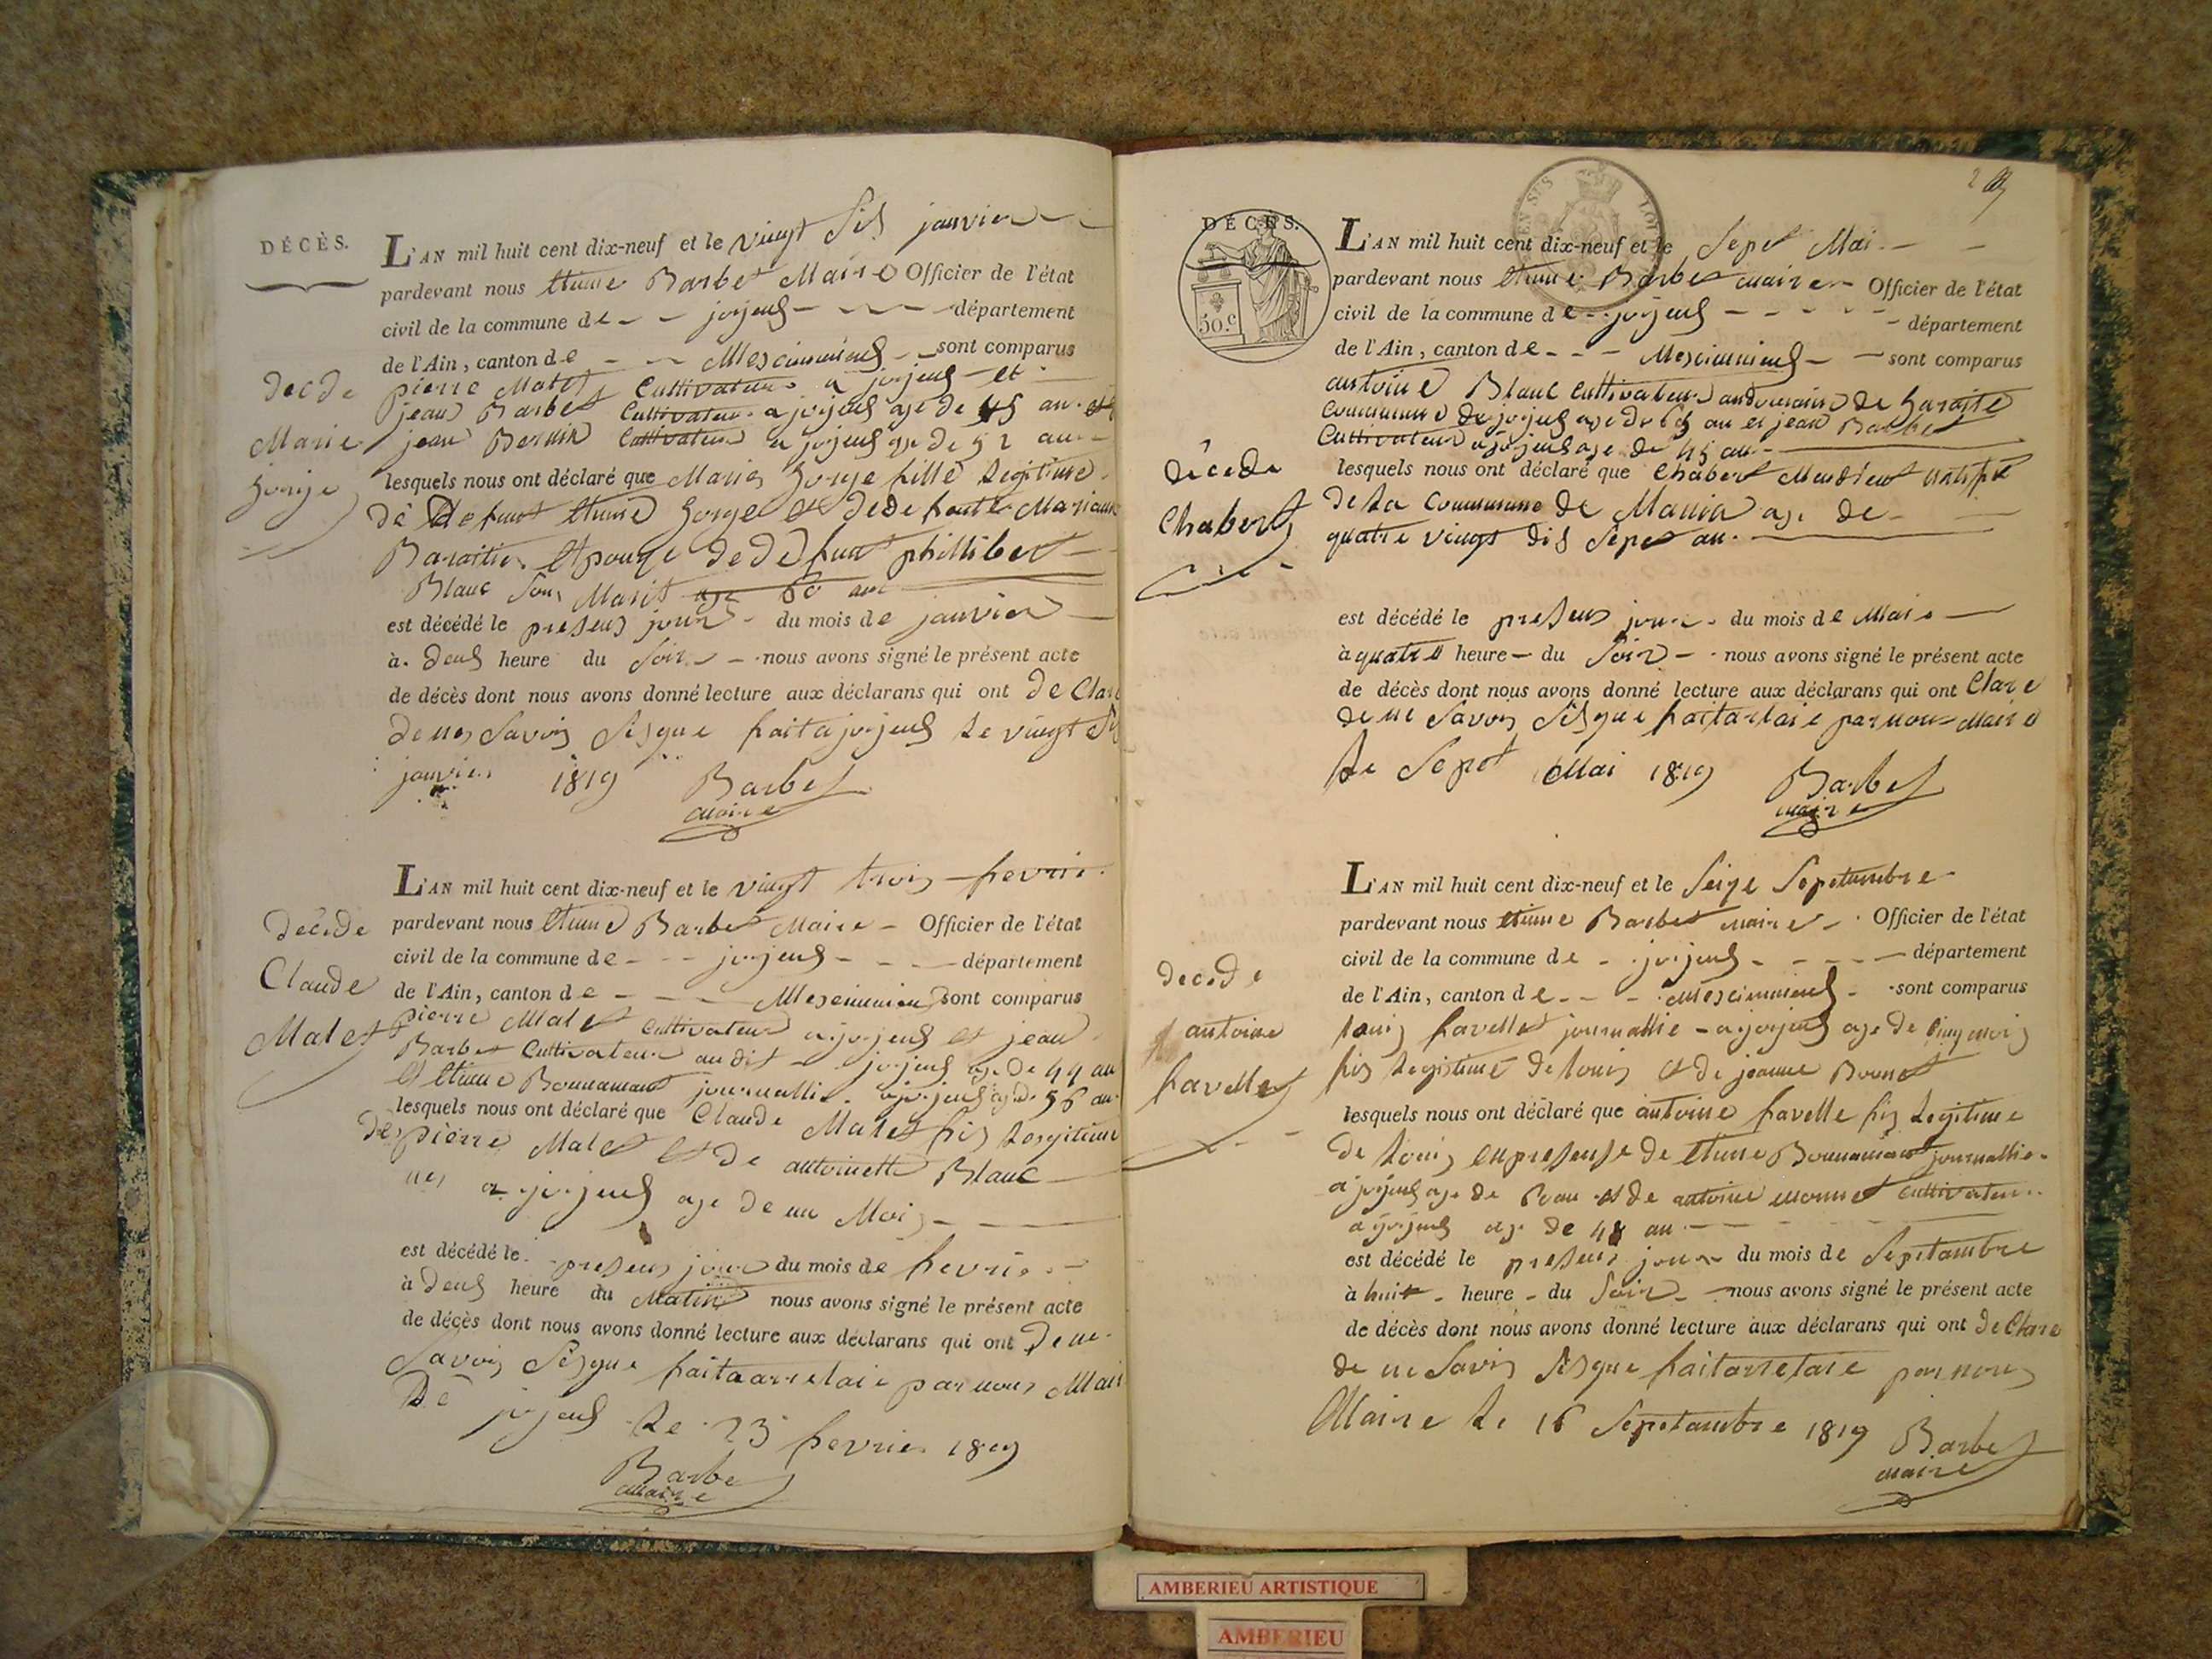 DÉCÈS.
L'AN mil huit cent dix-neuf et le vingt Sis janvier
pardevant nous Etienne Barbet Maire Officier de l'état
civil de la commune de joyeus département
de l'Ain, canton de Meximieus sont comparus
pierre Malet Cultivateur a joyeus et
jean Barbet Cultivateur a joyeus age de 45 an et
jean Cultivateur a joyeus age de 52 an
lesquels nous ont déclaré que Marie Gorge fille Legitime
de Defunt Etienne Gorge et de defunte Marianne
Baratier Epouze de defunt phillibert
Blanc Son Marit age 60 an
est décédé le presens jour du mois de janvier
à Deus heure du Soir nous avons signé le présent acte
de décès dont nous avons donné lecture aux déclarans qui ont de Clare
de ne Savoir Signe fait a joyeus Le vingt Sis
janvier 1819 Barbet
maire
decede
Marie
Gorge
L'AN mil huit cent dix-neuf et le vingt trois fevrie
pardevant nous Etienne Barbet Maire Officier de l'état
civil de la commune de joyeus département
de l'Ain, canton de Meximieu sont comparus
pierre Malet Cultivateur a joyeus et jean
Barbet Cultivateur au dit joyeus age de 44 an
et Etienne Bonnamant journallie a joyeus age de 56 an
lesquels nous ont déclaré que Claude Malet fis Legitime
de pierre Malet et de antoinette Blanc
nes a joyeus age de un Mois
est décédé le presens jour du mois de fevrie
à Deus heure du Matin nous avons signé le présent acte
de décès dont nous avons donné lecture aux déclarans qui ont De ne
Savoir Signe fait par nous Maire
De joyeus Le 23 fevrier 1819
Barbe
maire
décéde
Claude
Malet
DÉCÈS.
50.c
2
L'AN mil huit cent dix-neuf et le Sept Mai
pardevant nous Etienne Barbet maire Officier de l'état
civil de la commune de joyeus département
de l'Ain, canton de Meximieus sont comparus
antoine Blanc Cultivateur au domaine de
Commune de joyeus age de 65 an et jean Barbet
Cultivateur a joyeus age de 45 an
lesquels nous ont déclaré que Chabert
de La Commune de age de
quatre vingt dis Sept an
est décédé le presens jour du mois de Mai
à quatre heure du Soir nous avons signé le présent acte
de décès dont nous avons donné lecture aux déclarans qui ont Clare
de ne Savoir Signe par nous Maire
Le Sept Mai 1819 Barbet
maire
décede
Chabert
L'AN mil huit cent dix-neuf et le Seize Septembre
pardevant nous etienne Barbet maire Officier de l'état
civil de la commune de joyeus département
de l'Ain, canton de Meximieus sont comparus
Louis favellet journallie a joyeus age de cinq mois
fis Legitime de Louis et de jeanne
lesquels nous ont déclaré que antoine favelle fis Legitime
de Louis en presense de Etienne Bonnamant journallie
a joyeus age de an et de antoine monnet Cultivateur
a joyeus age de 48 an
est décédé le presens jour du mois de Septambre
à huit heure du Soir nous avons signé le présent acte
de décès dont nous avons donné lecture aux déclarans qui ont de Clare
de ne Savoir Signe par nous
Maire Le 16 Septambre 1819 Barbet
maire
decede
antoine
favellet
AMBERIEU ARTISTIQUE
AMBERIEU